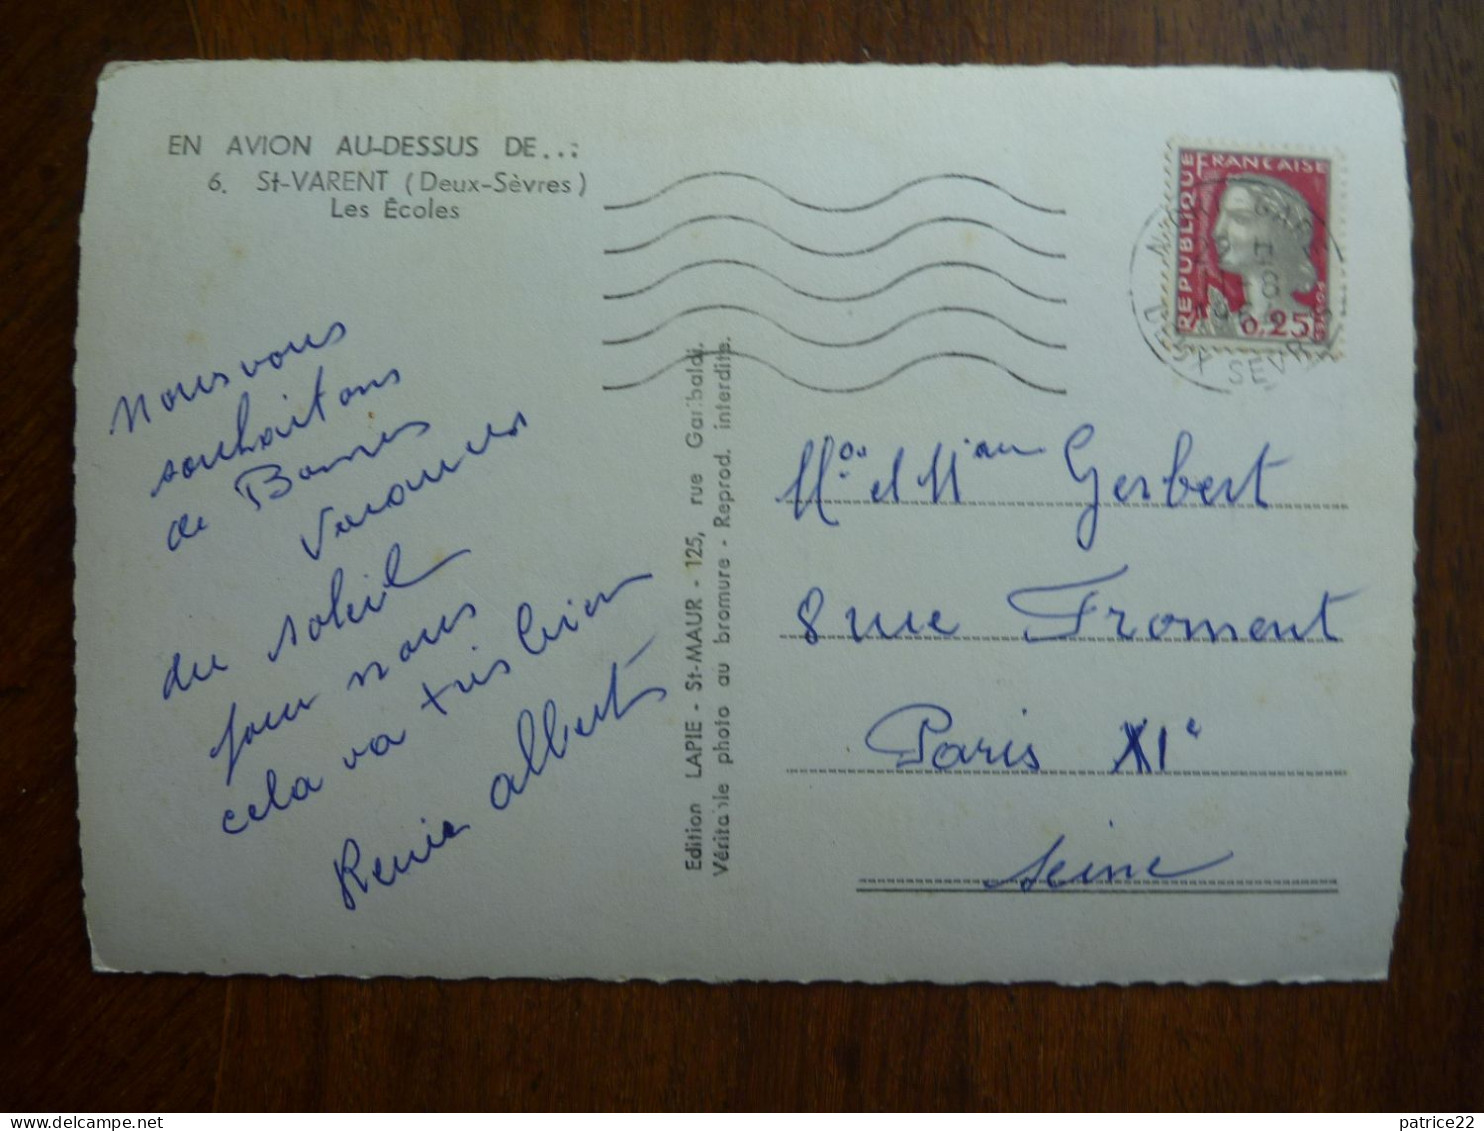 EN AVION AU-DESSUS DE...
6. St-VARENT (Deux-Sèvres)
Les Écoles
Nous vous
souhaitons
de Bonnes
Vacances
du soleil
pour nous
cela va très bien
Renée Albert
Edition LAPIE - St-MAUR - 125, rue Garibaldi.
Véritable photo au bromure - Reprod. interdite.
REPUBLIQUE FRANCAISE
POSTES
0,25
SEVRES
et Mme Gerbert
8 rue Froment
Paris XIe
Seine
patrice22